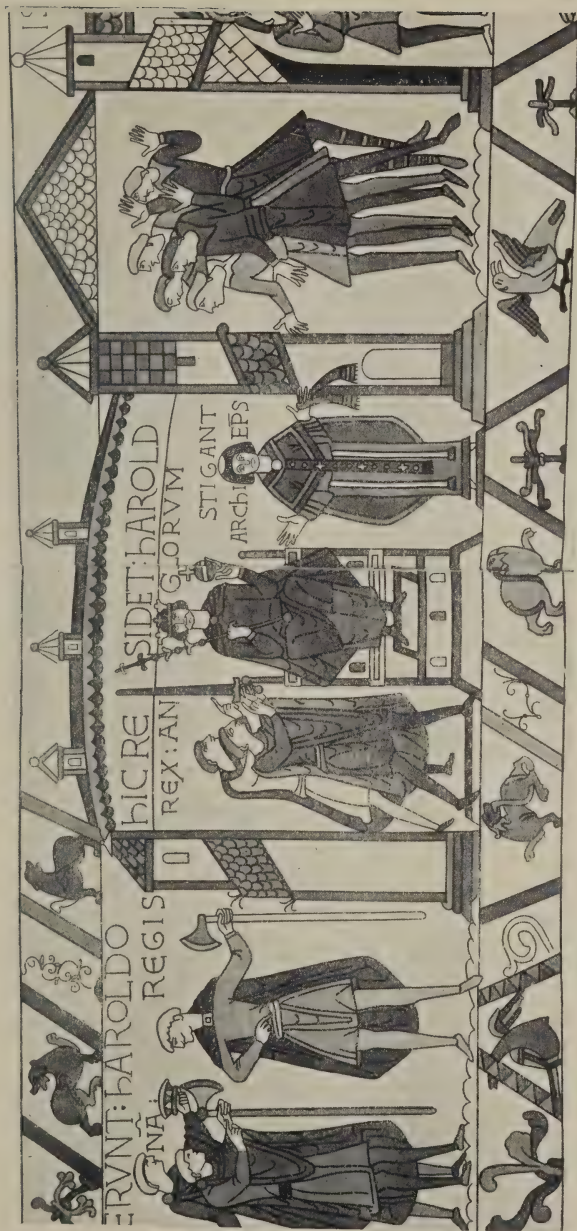 ERVNT: hAROLDO
NA: REGIS
hIC RE SIDET: hAROLD
REX: AN GLORVM
STIGANT
ARChI EPS
IS